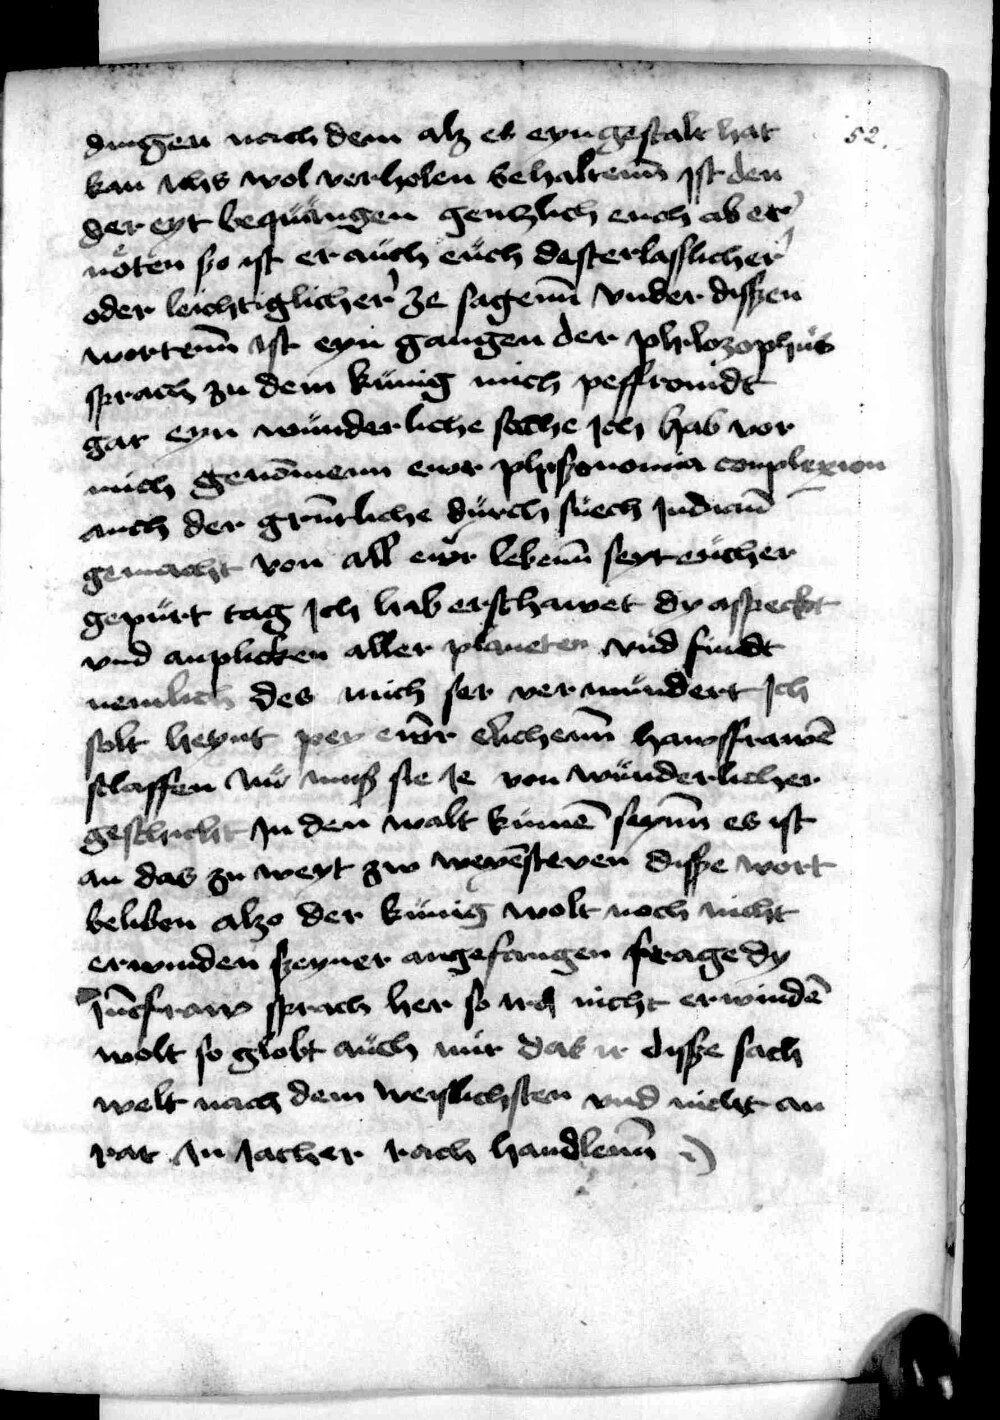 52.
dingen nach dem alz es eyn gestalt hat
kan ichs wol verholen behaltenn ist den
der eyt bequängen gentzlich euch ab er
nöten so ist er aúch eúch dester lasslicher
oder leichtiglicher ze sagenn vnder dissen
wortenn ist eyn gangen der philozophús
sprach zu dem kúnig mich peffromdt
gar eyn wúnderliche sache Ich hab vor
mich genomenn ewr phisonomia complexion
auch der grúntliche dúrch súech Indicium
gemacht von all ewr lebenn seyt eúcher
gepúrt tag Ich hab erschawet dy aspeckt
vnd anplicken aller planeten vnd findt
nemlich des mich ser verwúndert Ich
solt heynt pey ewr elichenn hawsfrawē
slaffen Nú múß sie Ie von wúnderlicher
geschicht In den walt kúmē seynn es ist
an das zu weyt zw weyēsteven disse wort
beliben alzo der kúnig wolt noch nicht
erwinden seyner angefangen frage dy
Júncfraw sprach her so ir nicht erwindē
wolt so globt aúch mir das ir disse sach
welt nach dem weyslichsten vnd nicht an
rat In Jacher rach handlenn